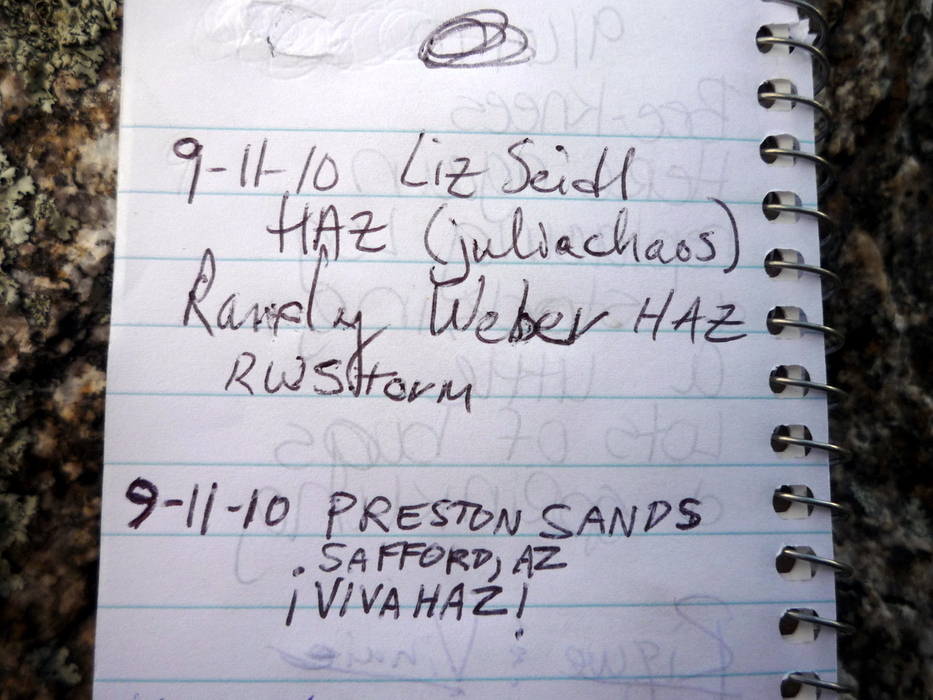 9-11-10 Liz Seidl
HAZ (juliachaos)
Randy Weber HAZ
RWStorm
9-11-10 PRESTON SANDS
SAFFORD, AZ
¡VIVA HAZ!